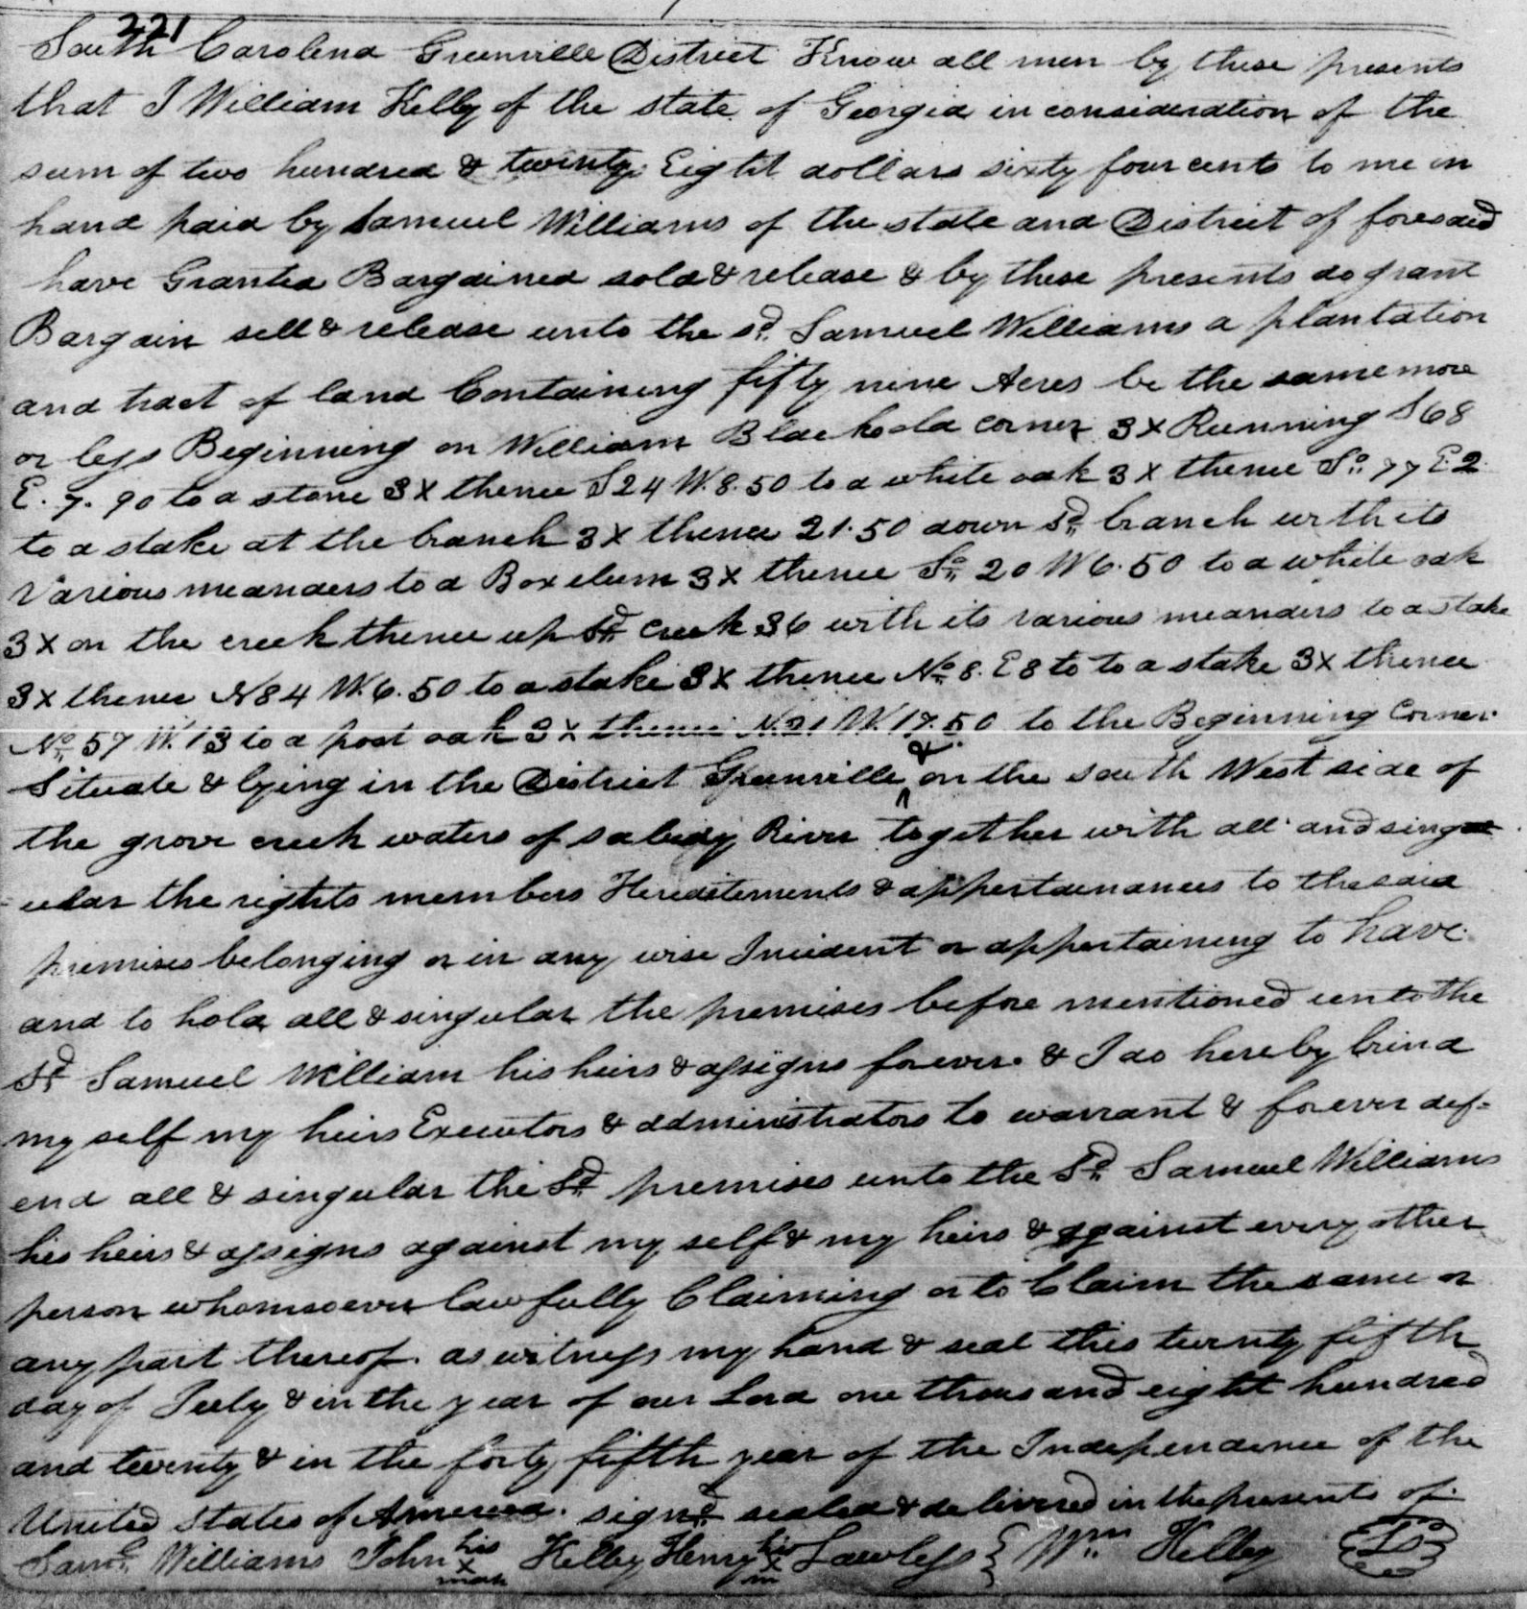 221
South Carolina Greenville District Know all men by these presents
that I William Kelly of the state of Georgia in consideration of the
sum of two hundred & twenty Eight dollars sixty four cents to me in
hand paid by Samuel Williams of the state and District of foresaid
have Granted Bargained sold & release & by these presents do grant
Bargain sell & release unto the sd. Samuel Williams a plantation
and tract of land Containing fifty nine Acres be the same more
or less Beginning on William Blac corner 3X Running S 68
E. 7. 90 to a stone 3X thence S 24 W. 8. 50 to a white oak 3X thence So. 77 E 2
to a stake at the branch 3X thence 21.50 down sd. branch with its
Various meanders to a Box elum 3X thence So. 20 W 6.50 to a white oak
3X on the creek thence up sd. creek 36 with its various meanders to a stake
3X thence N 84 W. 6. 50 to a stake 3X thence No. 8. E 8 to to a stake 3X thence
No. 57 W. 13 to a post oak 3X thence N. 21 W. 17. 50 to the Beginning Corner
Situate & lying in the District Greenville & on the south West side of
the grove creek waters of saludy River together with all and sing
ular the rights members Hereditements & appertainances to the said
premises belonging or in any wise Incident or appertaining to have
and to hold all & singular the premises before mentioned unto the
sd. Samuel William his heirs & assigns forever & I do hereby bind
my self my heirs Executors & administrators to warrant & forever def-
end all & singular the sd. premises unto the sd. Samuel Williams
his heirs & assigns against my self & my heirs & against every other
person whomsoever lawfully Claiming or to Claim the same or
any part thereof. as witness my hand & seal this twenty fifth
day of July & in the year of our Lord one thousand eight hundred
and twenty & in the forty fifth year of the Independence of the
United States of America. signd sealed & delivered in the presents of
Saml. Williams John his X mark Kelley Henry his X m Lawless } Wm. Kelley LS